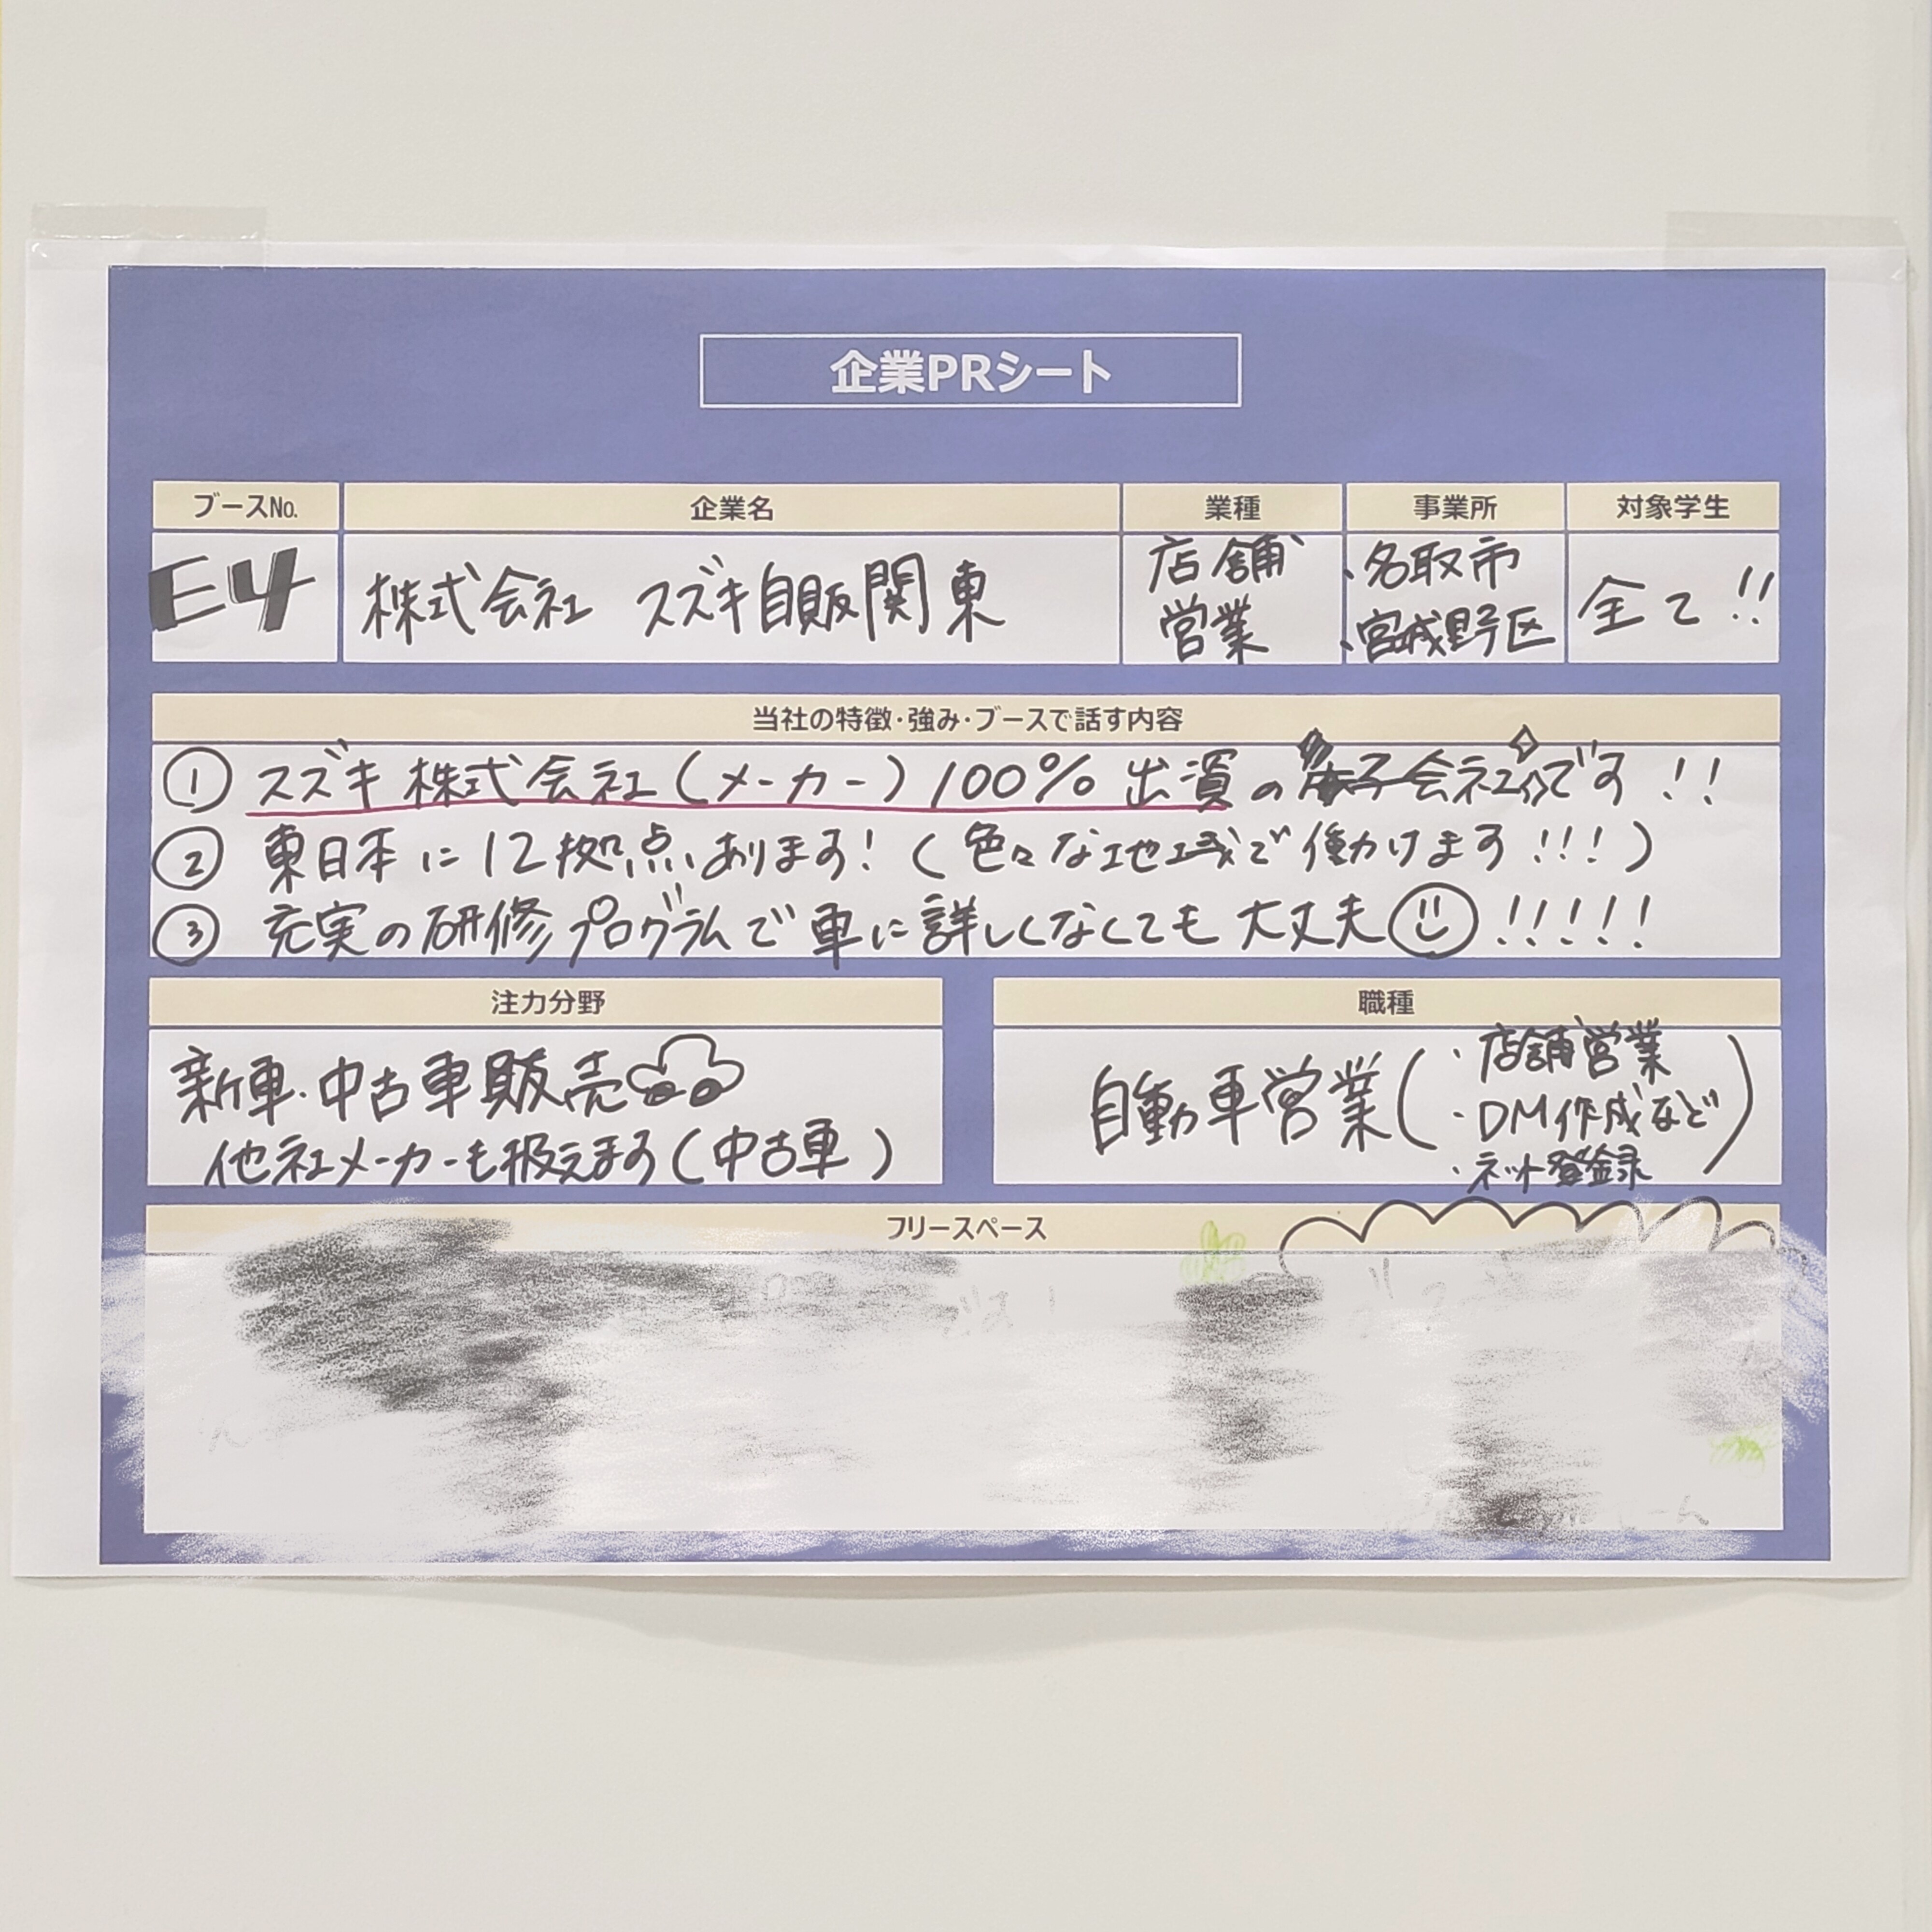 企業PRシート
ブースNo. 企業名 業種 事業所 対象学生
E4 株式会社 スズキ自販関東 店舗営業 ・名取市 ・宮城野区 全て!!
当社の特徴・強み・ブースで話す内容
① スズキ株式会社(メーカー)100%出資の子会社です!!
② 東日本に12拠点あります!(色々な地域で働けます!!!)
③ 充実の研修プログラムで車に詳しくなくても大丈夫!!!!!
注力分野
新車・中古車販売
他社メーカーも扱えます(中古車)
職種
自動車営業(・店舗営業
・DM作成など
・ネット登録)
フリースペース